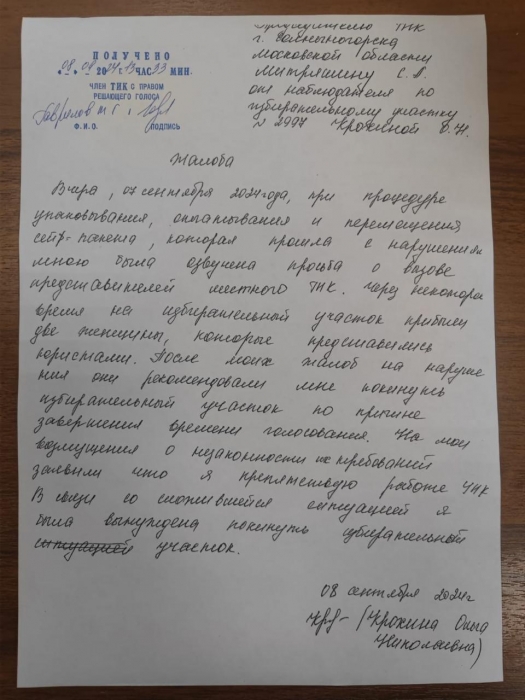 ПОЛУЧЕНО
08.09 2024 13 ЧАС 33 МИН.
ЧЛЕН ТИК С ПРАВОМ
РЕШАЮЩЕГО ГОЛОСА
Гаврилов
Ф.И.О. ПОДПИСЬ
Председателю ТИК
г. Солнечногорска
Московской области
Митряшину С.А.
от наблюдателя по
избирательному участку
№ 2997 Крохиной О.Н.
Жалоба
Вчера, 07 сентября 2024 года, при процедуре
упаковывания, опечатывания и перемещения
сейф-пакета, которая прошла с нарушениями
мною была озвучена просьба о вызове
представителей местного ТИК. Через некоторое
время на избирательный участок прибыли
две женщины, которые представились
юристами. После моих жалоб на наруше
ния они рекомендовали мне покинуть
избирательный участок по причине
завершения времени голосования. На мои
возмущения о незаконности их требований
заявили что я препятствую работе УИК
В связи со сложившейся ситуацией я
была вынуждена покинуть избирательный
ситуацией участок.
08 сентября 2024г
(Крохина Ольга
Николаевна)